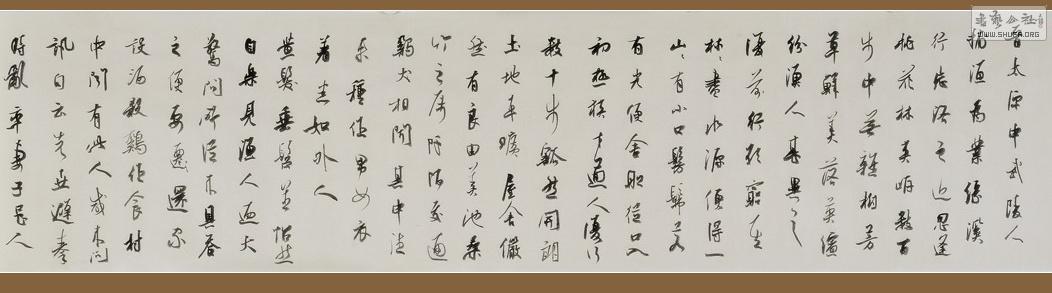 晋太原中武陵人
捕渔为業缘溪
行忘路之近忽逢
桃花林夹岸數百
步中無雜樹芳
草鮮美落英繽
紛漁人甚異之
復前行欲窮其
林々盡水源便得一
山々有小口髣髴若
有光便舍船從口入
初極狹才通人復行
數十步豁然開朗
土地平曠屋舍儼
然有良田美池桑
竹之屬阡陌交通
鷄犬相聞其中往
来種作男女衣
着悉如外人
黄髮垂髫並怡然
自樂見漁人迺大
驚問所從来具答
之便要還家
設酒殺鷄作食村
中聞有此人咸来問
訊自云先世避秦
時亂率妻子邑人
书艺公社
WWW.SHUFA.ORG